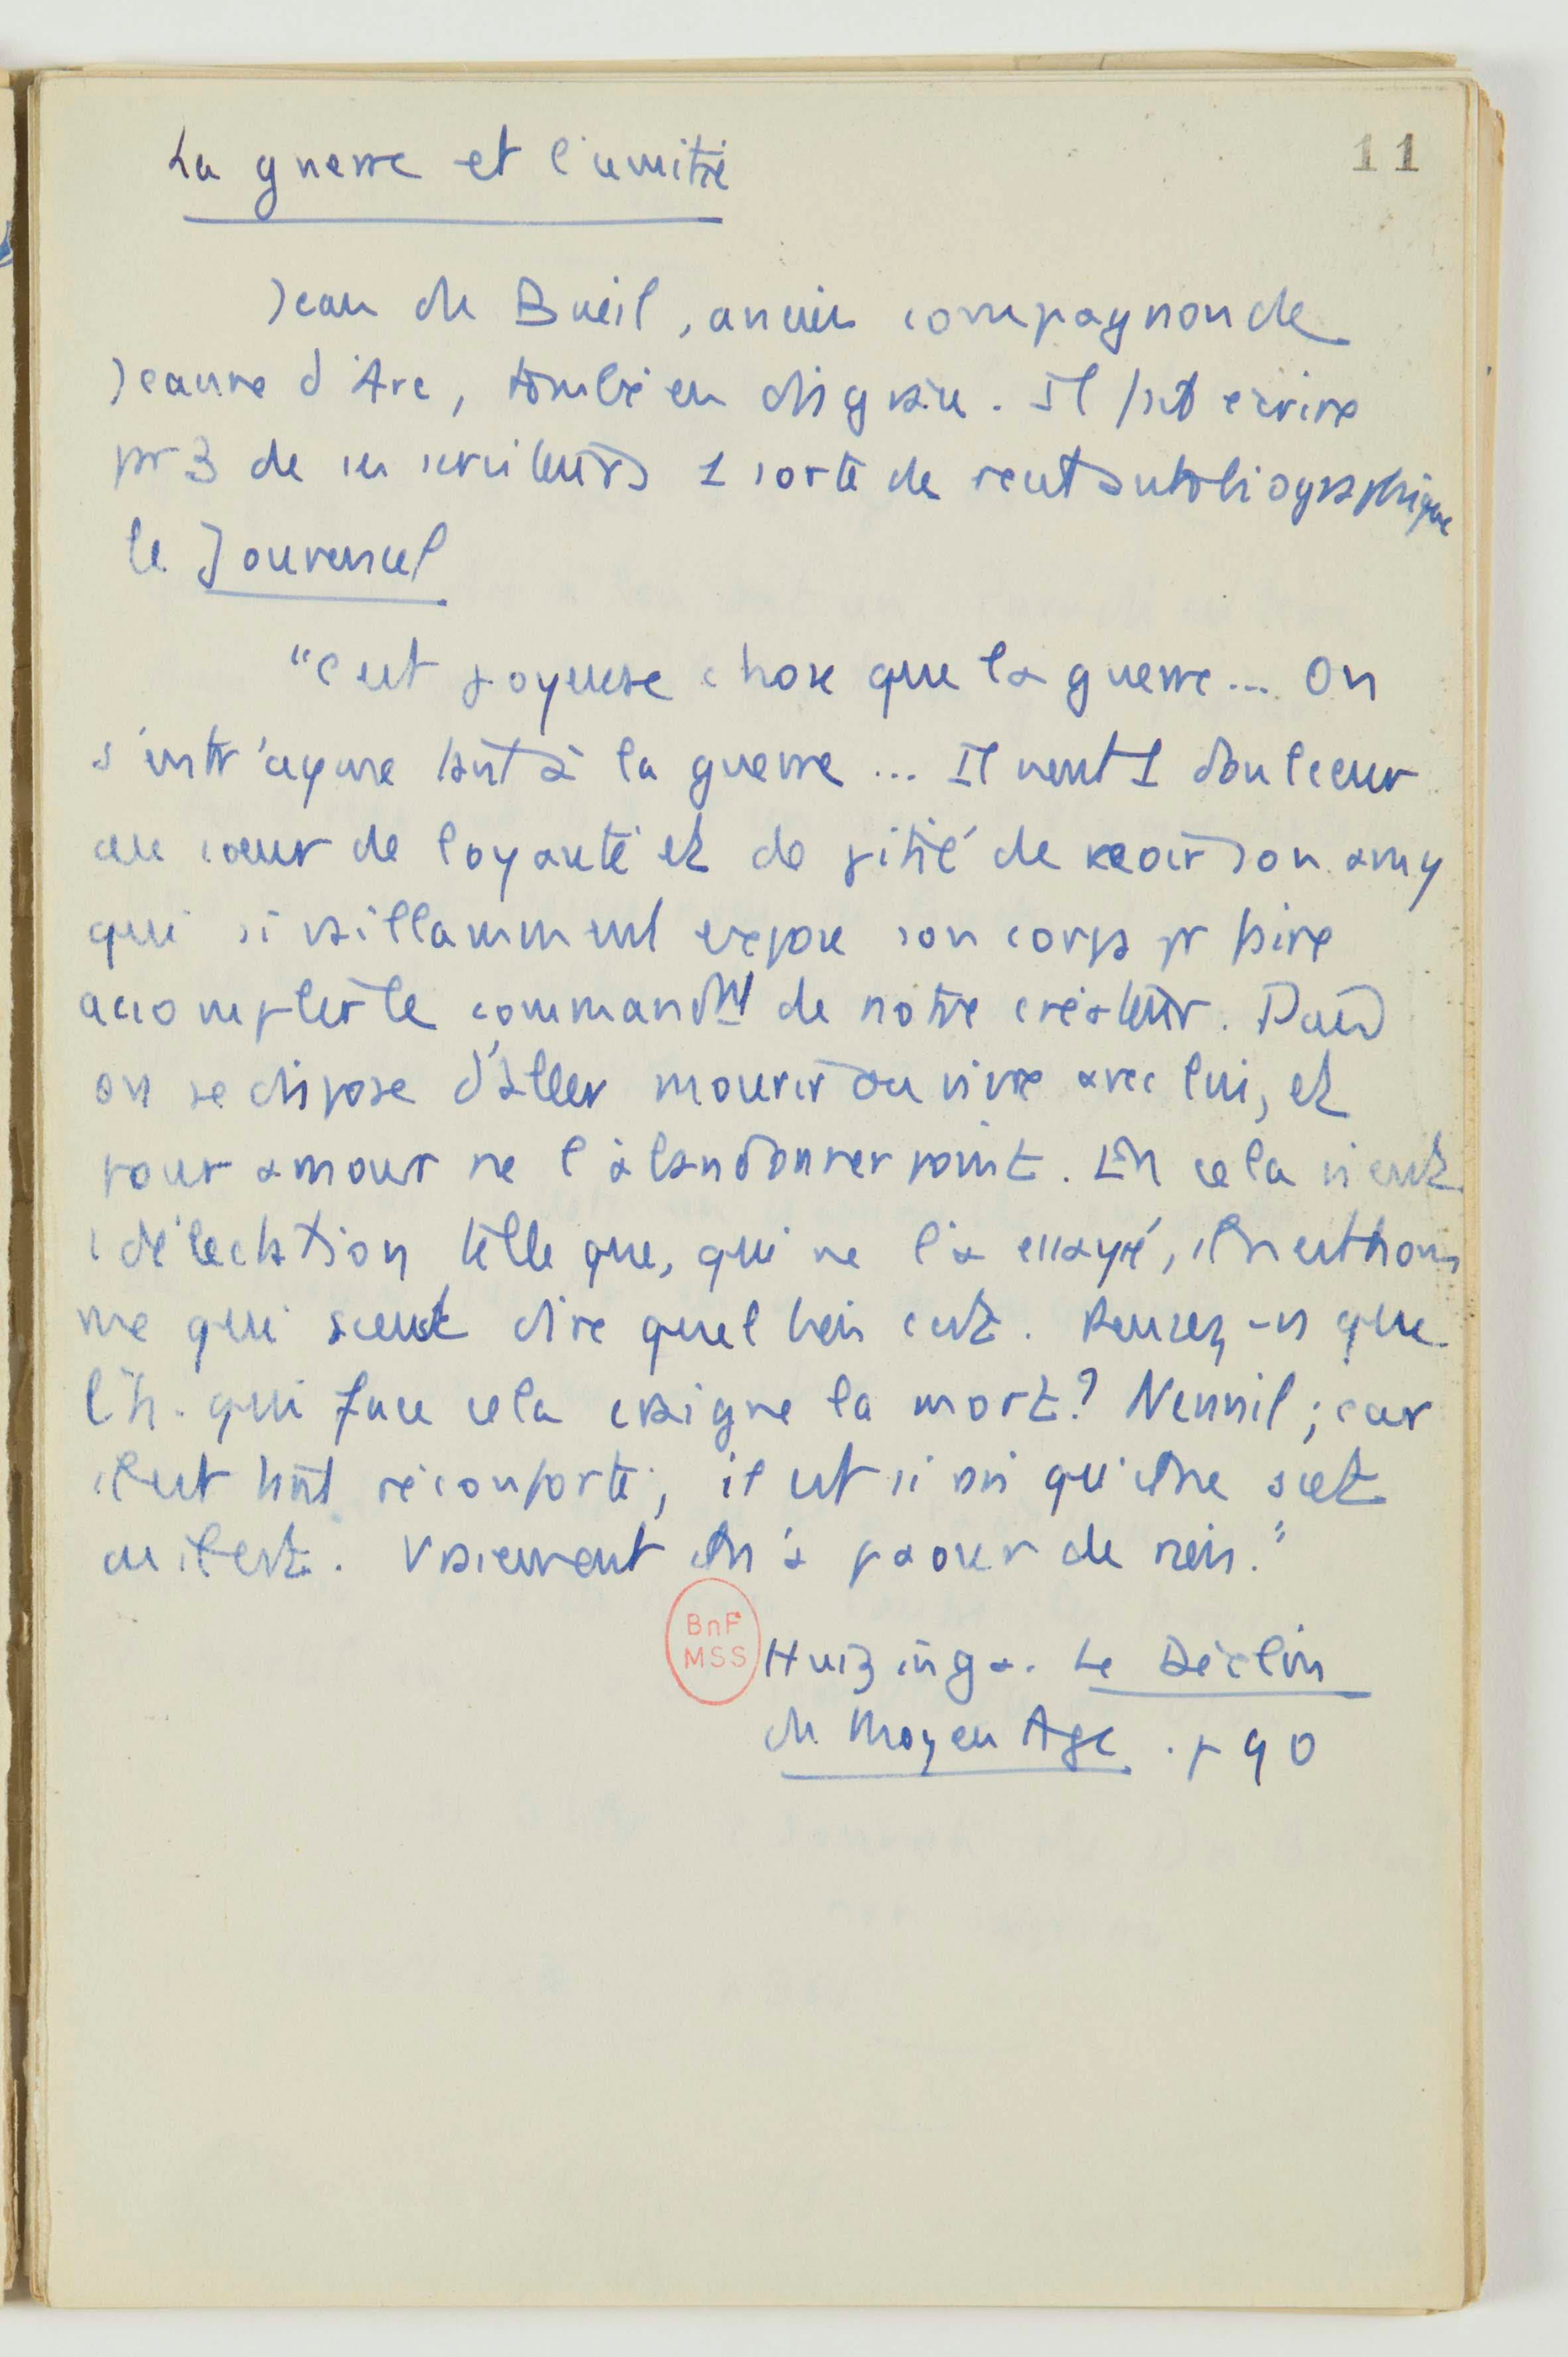 11
La guerre et l'amitié
Jean du Bueil, ancien compagnon de
Jeanne d'Arc, tombé en disgrâce. Il fait écrire
par 3 de ses serviteurs 1 sorte de récit autobiographique
le Jouvencel
"C'est joyeuse chose que la guerre... On
s'entr'ayme tant à la guerre... Il vient 1 doulceur
au cœur de loyauté et de pitié de veoir son amy
qui si vaillamment expose son corps pr faire
accomplir le commandmt de notre créateur. Puis
on se dispose d'aller mourir ou vivre avec lui, et
pour amour ne l'abandonner point. En cela vient
1 délectation telle que, qui ne l'a essayé, il n'est hom
me qui sceust dire quel bien c'est. Pensez-vs que
l'h. qui face cela craigne la mort? Nennil; car
il est tant réconforté, il est si ravi qu'il ne scet
où il est. Vraiement il n'a paour de rien."
BnF
MSS
Huizinga. Le Déclin
du Moyen Age. p 90